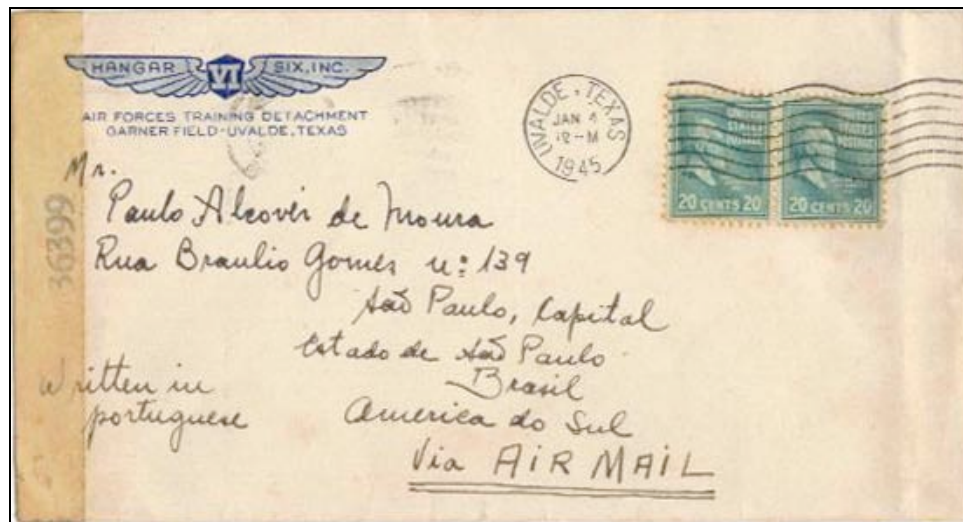 HANGAR VI SIX, INC.
AIR FORCES TRAINING DETACHMENT
GARNER FIELD-UVALDE, TEXAS
UVALDE, TEXAS
JAN 4
12-M
1945
UNITED STATES POSTAGE
20 CENTS 20
20 CENTS 20
36399
Mr.
Paulo Alcover de Moura
Rua Braulio Gomes nº 139
São Paulo, Capital
Estado de São Paulo
Brasil
America do Sul
Via AIR MAIL
Written in
portuguese